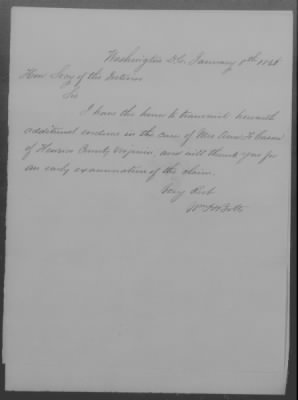 Washington D.C. January 8th 1868
Hon. Secy of the Interior
Sir
I have the honor to transmit herewith
additional evidence in the case of Mrs Ann
of Henrico County Virginia, and will thank you for
an early examination of the claim.
Very Rest
Wm